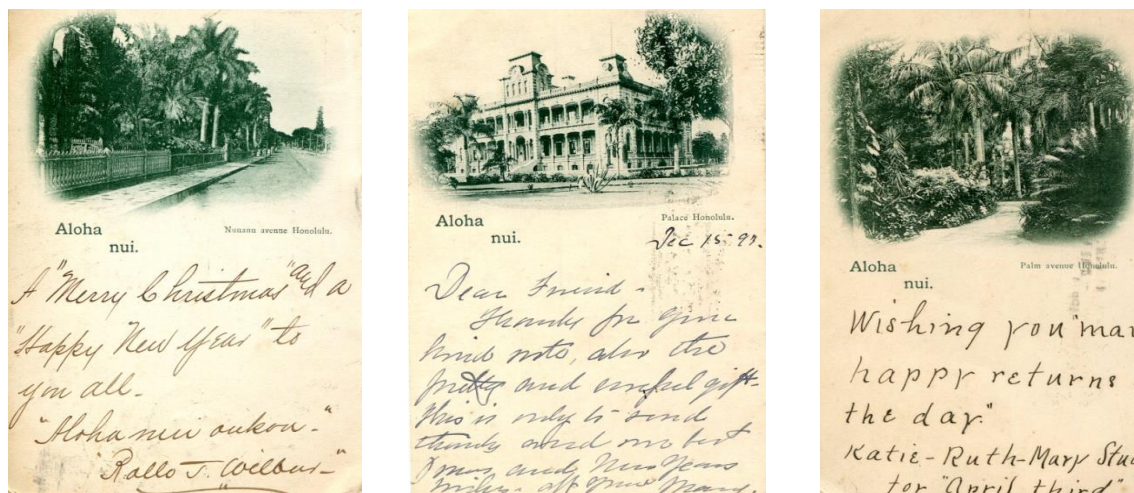 Aloha
nui.
Nuuanu avenue Honolulu.
A "Merry Christmas" and a
"Happy New Year" to
you all.
"Aloha nui oukou."
Rollo T. Wilbur
Aloha
nui.
Palace Honolulu.
Dec 15 97.
Dear Friend -
Thanks for your
kind note, also the
pretty and useful gift.
This is only to send
thanks and our best
Xmas and New Years
wishes
Aloha
nui.
Palm avenue Honolulu.
Wishing you "man
happy returns
the day."
Katie-Ruth-Mary Stu
for "April third"